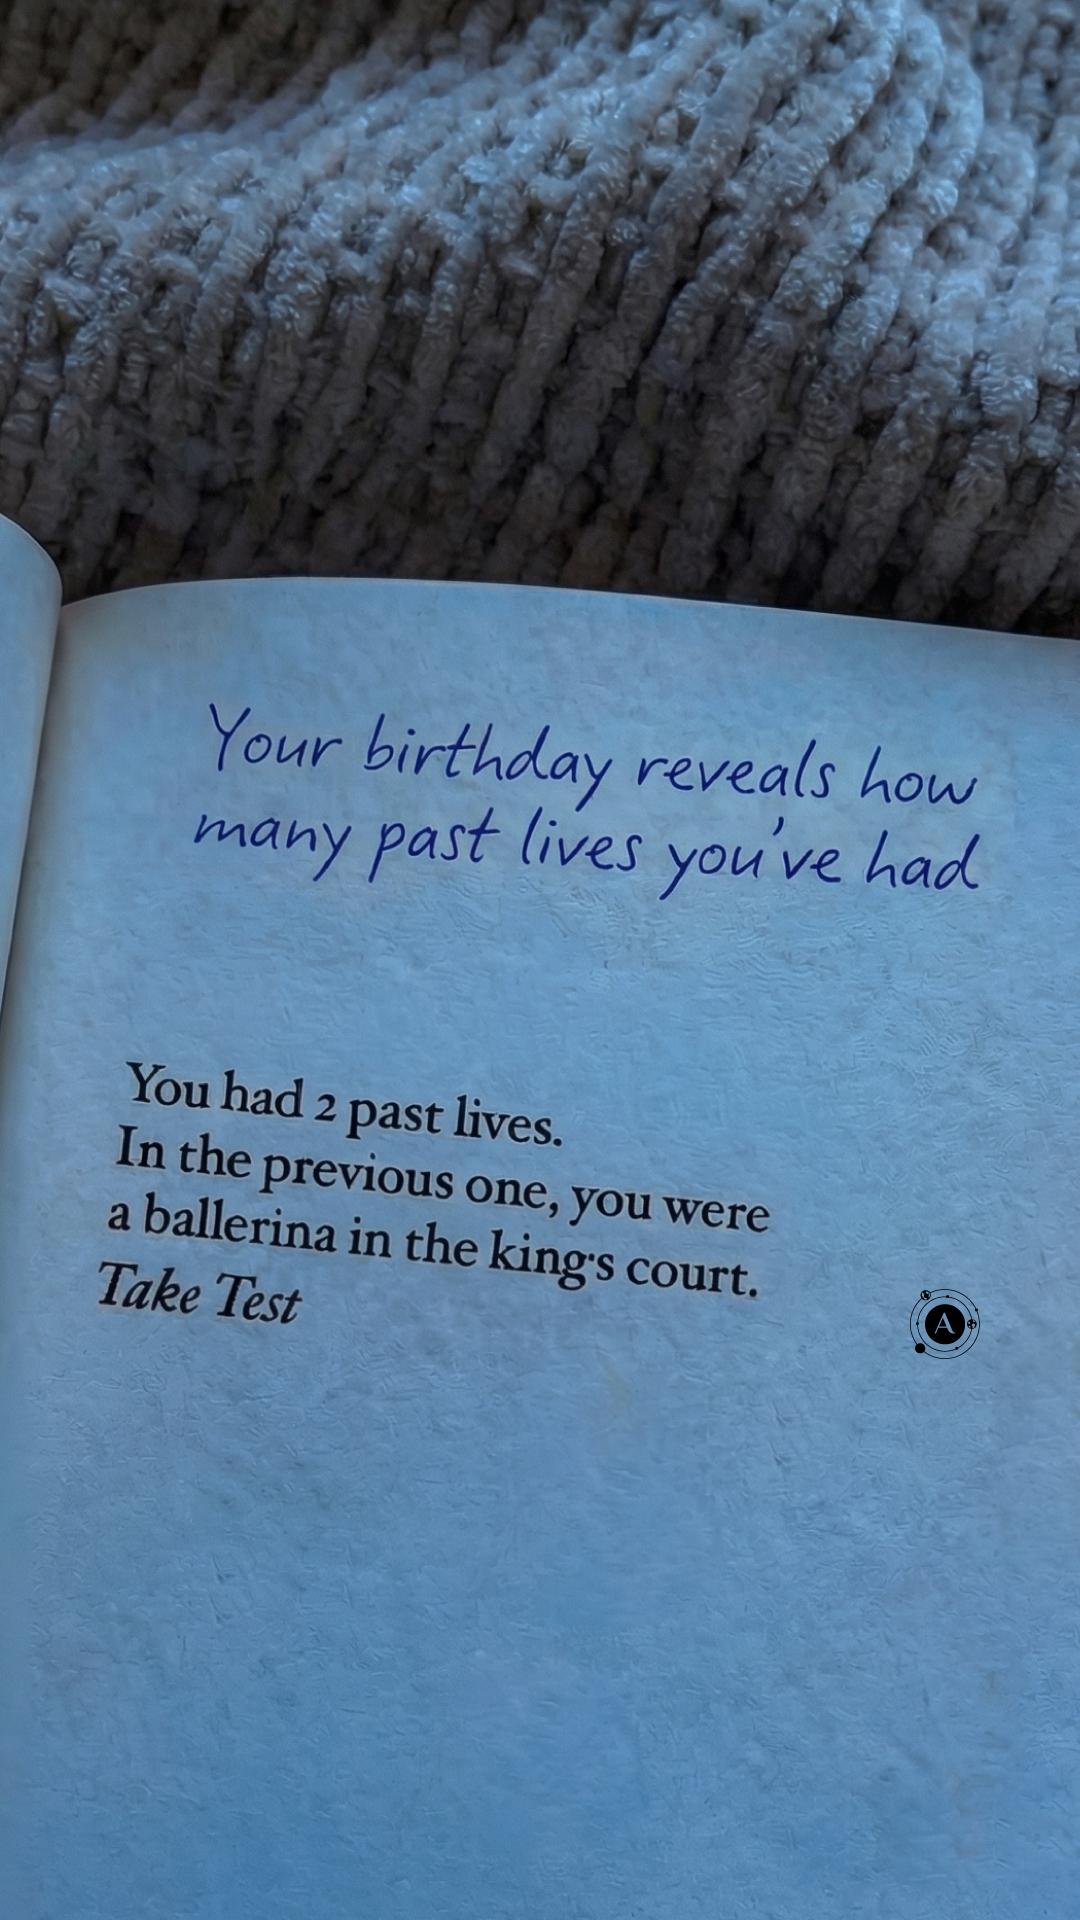 Your birthday reveals how
many past lives you've had
You had 2 past lives.
In the previous one, you were
a ballerina in the king's court.
Take Test
A